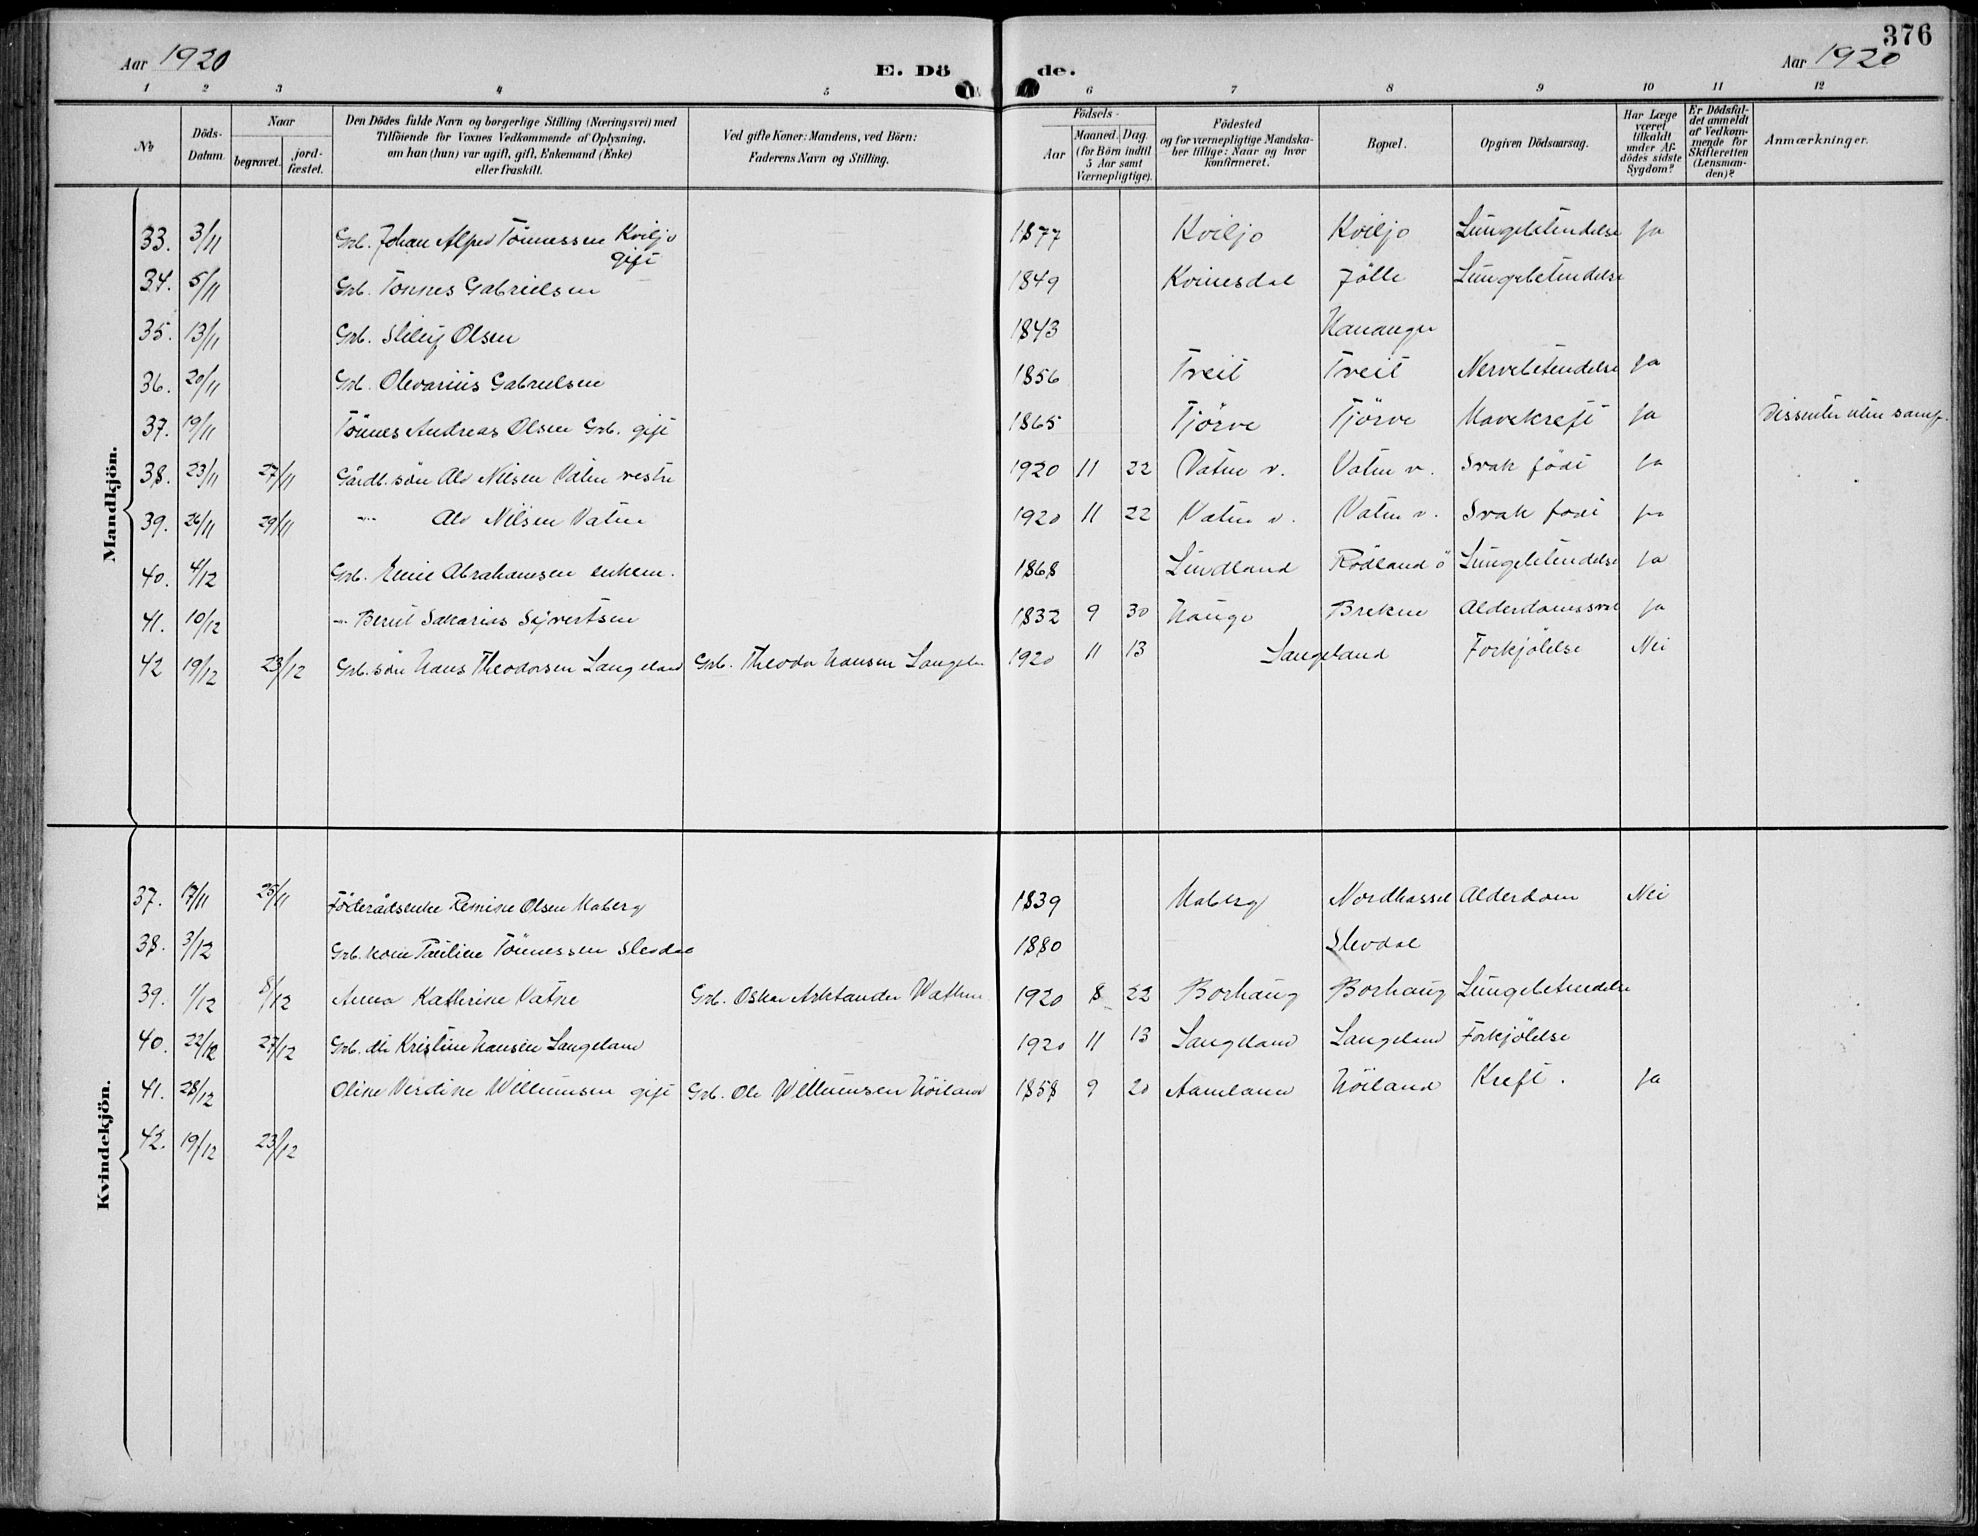 376
Aar 1920
E. Dö de.
Aar 1920
1 2 3 4 5 6 7 8 9 10 11 12
No
Döds-Datum.
Naar
begravet.
jord-fæstet.
Den Dödes fulde Navn og borgerlige Stilling (Næringsvei) med
Tilföiende for Voxnes Vedkommende af Oplysning,
om han (hun) var ugift, gift, Enkemand (Enke)
eller fraskilt.
Ved gifte Koner: Mandens, ved Börn:
Faderens Navn og Stilling.
Födsels-
Aar
Maaned. Dag.
(for Börn indtil
5 Aar samt
Værnepligtige).
Födested
og for værnepligtige Mandska-
ber tillige: Naar og hvor
konfirmeret.
Bopæl.
Opgiven Dödsaarsag.
Har Læge
været
tilkaldt
under Af-
dödes sidste
Sygdom?
Er Dödsfal-
det anmeldt
af Vedkom-
mende for
Skifteretten
(Lensman-
den)?
Anmærkninger.
Mandkjön.
33. 3/11 Grb. Johan Alfred Tönnessen Kviljo gift 1877 Kviljo Kviljo Lungebetendelse Ja
34. 5/11 Grb. Tönnes Gabrielsen 1849 Kvinesdal Jölle Lungebetendelse
35. 13/11 Grb. Olsen 1843 Hananger
36. 20/11 Grb. Olevarius Gabrielsen 1856 Treit Treit Nervebetendelse Ja
37. 19/11 Tönnes Andreas Olsen Grb. gift 1865 Tjörve Tjörve Mavekreft Ja Dissenter uten samf.
38. 23/11 27/11 Gårdb. sön Alv Nilsen Vatne vestre 1920 11 22 Vatne v. Vatne v. Svak födt Ja
39. 26/11 29/11 -"- Alv Nilsen Vatne 1920 11 22 Vatne v. Vatne v. Svak födt Ja
40. 4/12 Grb. Abrahamsen enkem. 1868 Lindland Rödland ö Lungebetendelse Ja
41. 10/12 -"- Berut Sakarias Sijvertsen 1832 9 30 Hauge Brekne Ja
42 19/12 23/12 Grb. sön Hans Theodorsen Langeland Grb. Theodor Hansen 1920 11 13 Langeland Forkjölelse Nei
Kvindekjön.
37. 17/11 25/11 Föderådsenke Remine Olsen Maberg 1839 Maberg Nordhassel Alderdom Nei
38. 3/12 Grb. kone Pauline Tönnessen Slevdal 1880 Slevdal
39. 1/12 8/12 Anna Kathrine Vatne Grb. Oskar Arktander Wathne 1920 8 22 Borhaug Borhaug Lungebetendelse
40. 22/12 27/12 Grb. dtr Kristine Hansen Langeland 1920 11 13 Langeland Langeland Forkjölelse
41. 28/12 Oline Verdine Willumsen gift Grb. Ole Willumsen Höiland 1858 9 20 Aamland Höiland Kreft. Ja
42. 19/12 23/12